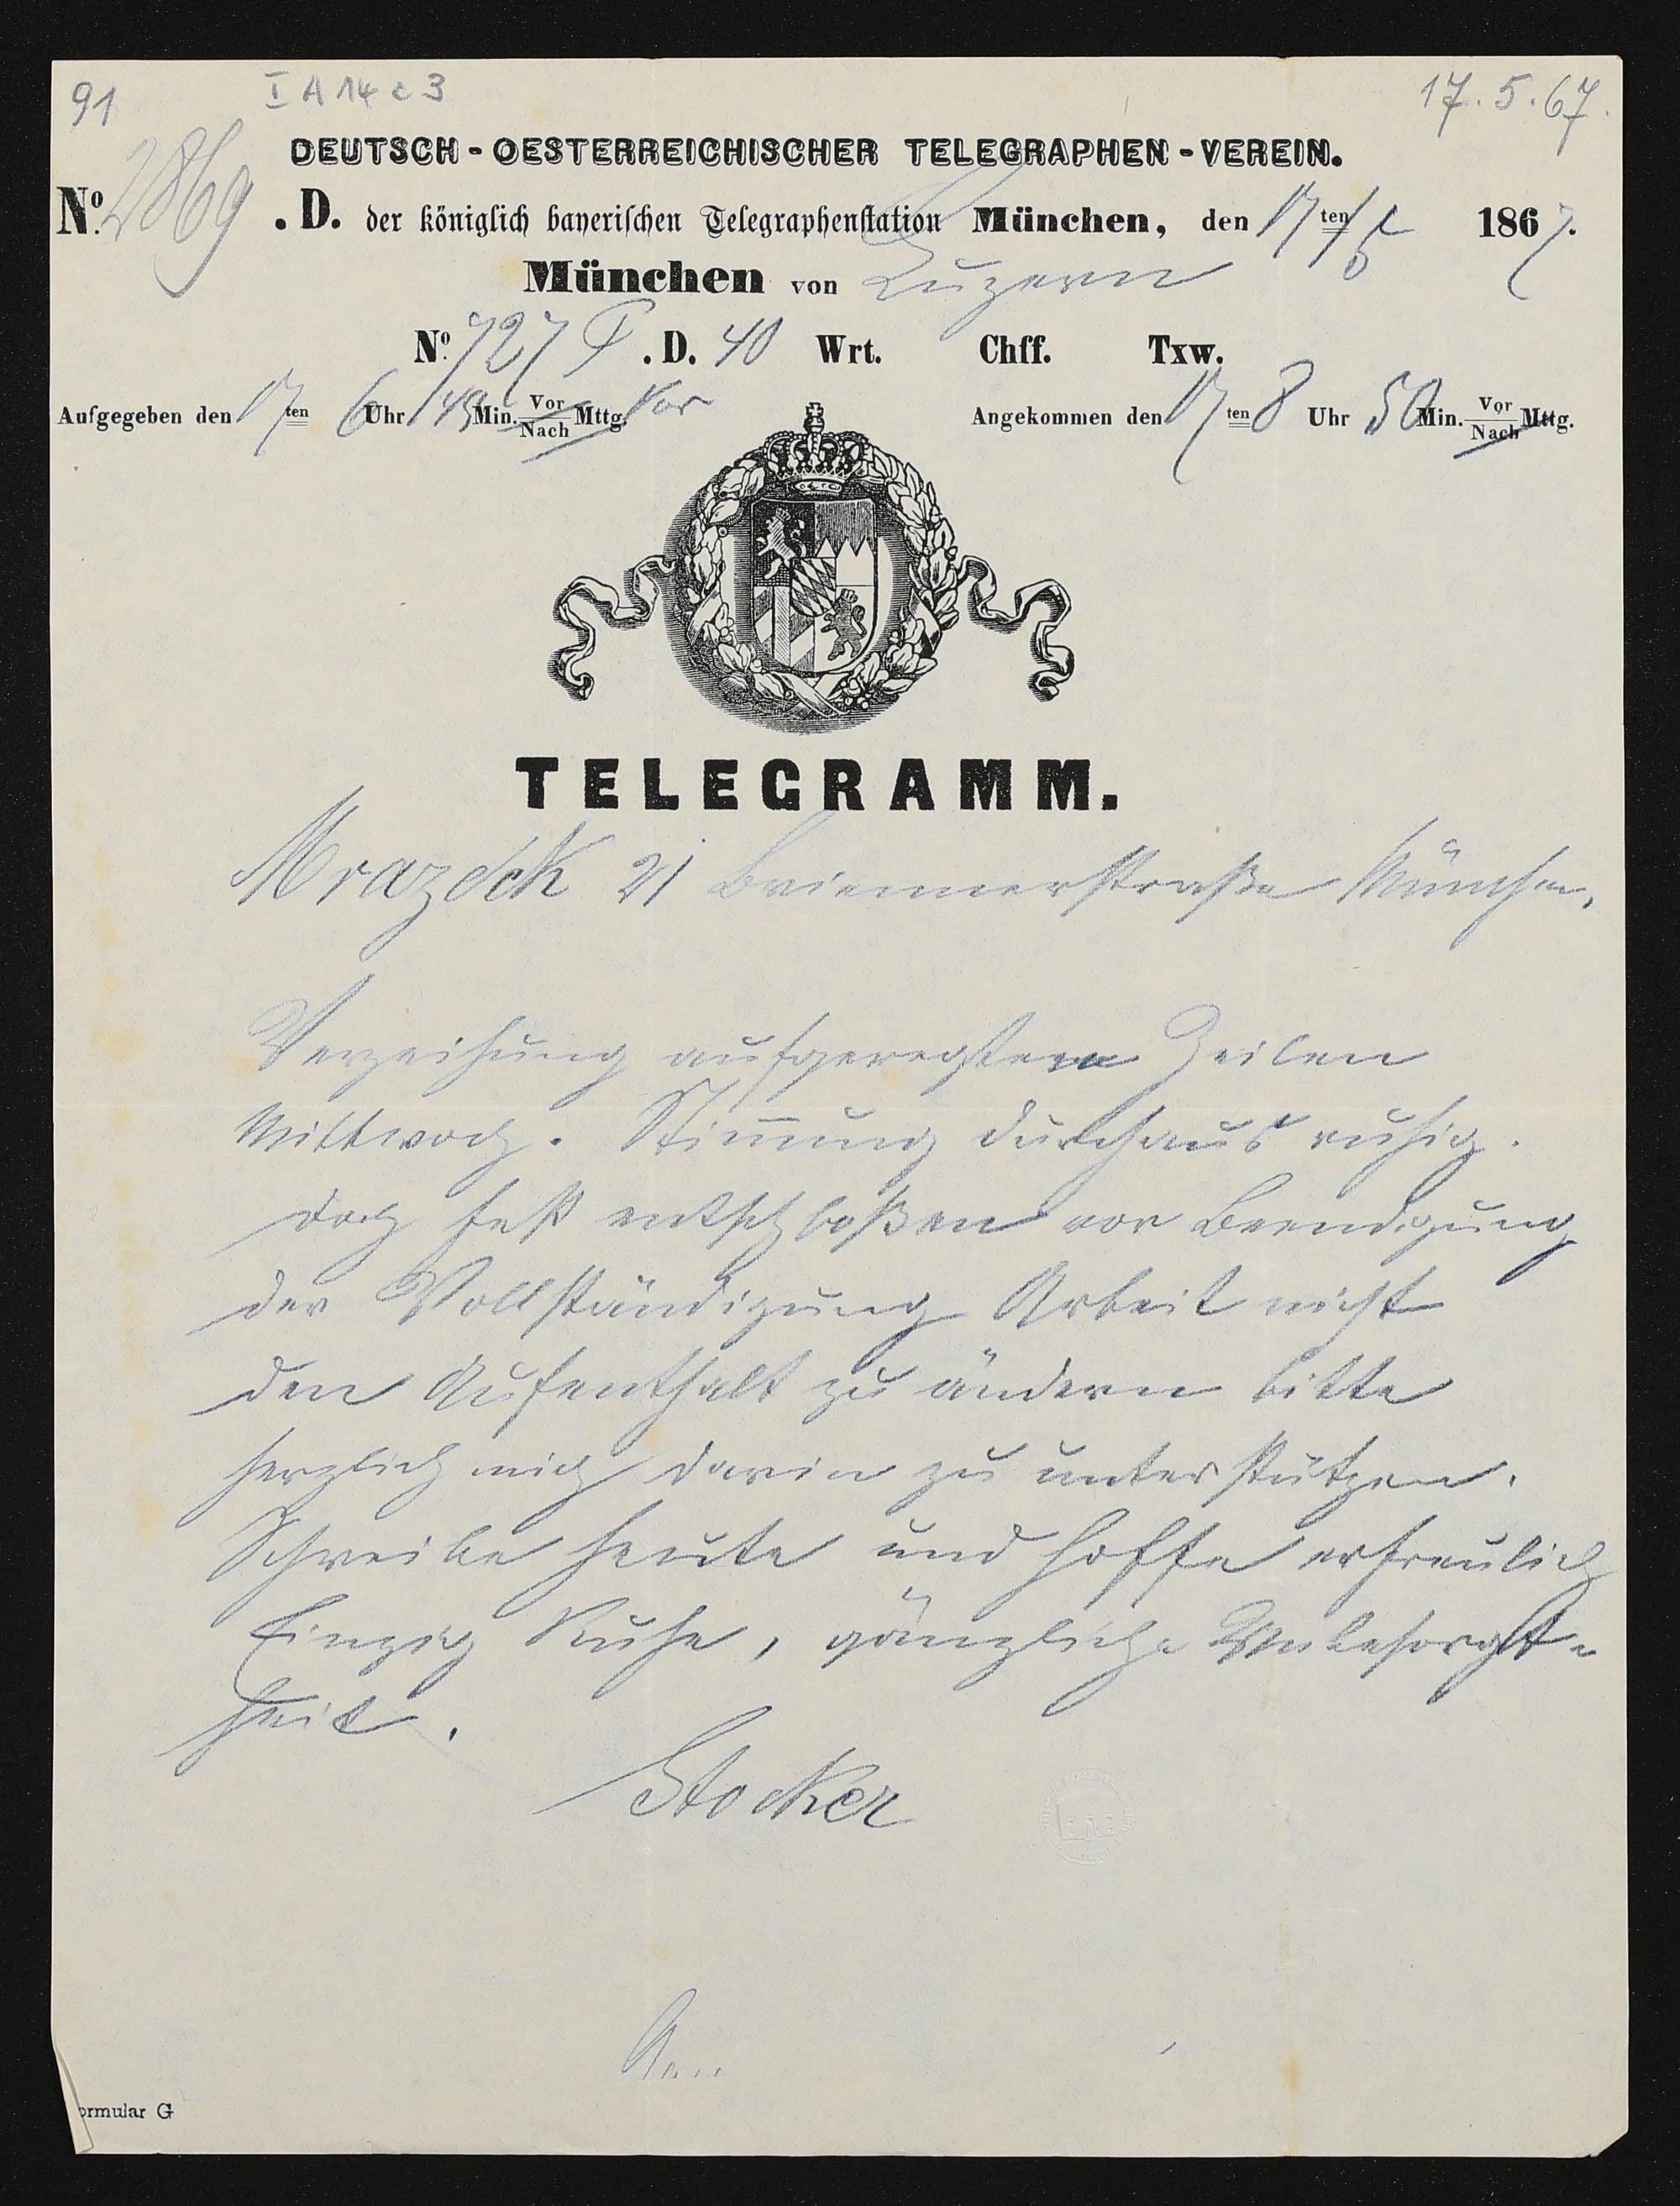 91
I A 14 c 3
17. 5. 67.
DEUTSCH - OESTERREICHISCHER TELEGRAPHEN - VEREIN.
No. 2869 . D. der königlich bayerischen Telegraphenstation München, den 17ten/5 1867.
München von Luzern
No. 727 P. D. 40 Wrt. Chff. Txw.
Aufgegeben den 17ten 6 Uhr 45 Min. Vor/Nach Mttg. Vor
Angekommen den 17ten 8 Uhr 50 Min. Vor/Nach Mttg.
TELEGRAMM.
Mrazeck 21 Briennerstraße München,
Verzeihung aufgeregten Zeilen
Mittwoch. Stim̅ung durchaus ruhig.
doch fest entschloßen vor Beendigung
der Vollständigung Arbeit nicht
den Aufenthalt zu ändern bitte
herzlich mich darin zu unterstützen.
Schreibe heute und hoffe erfreulich
Einzig Ruhe, gänzliche Unbesorgt-
heit.
Stocker
ormular G